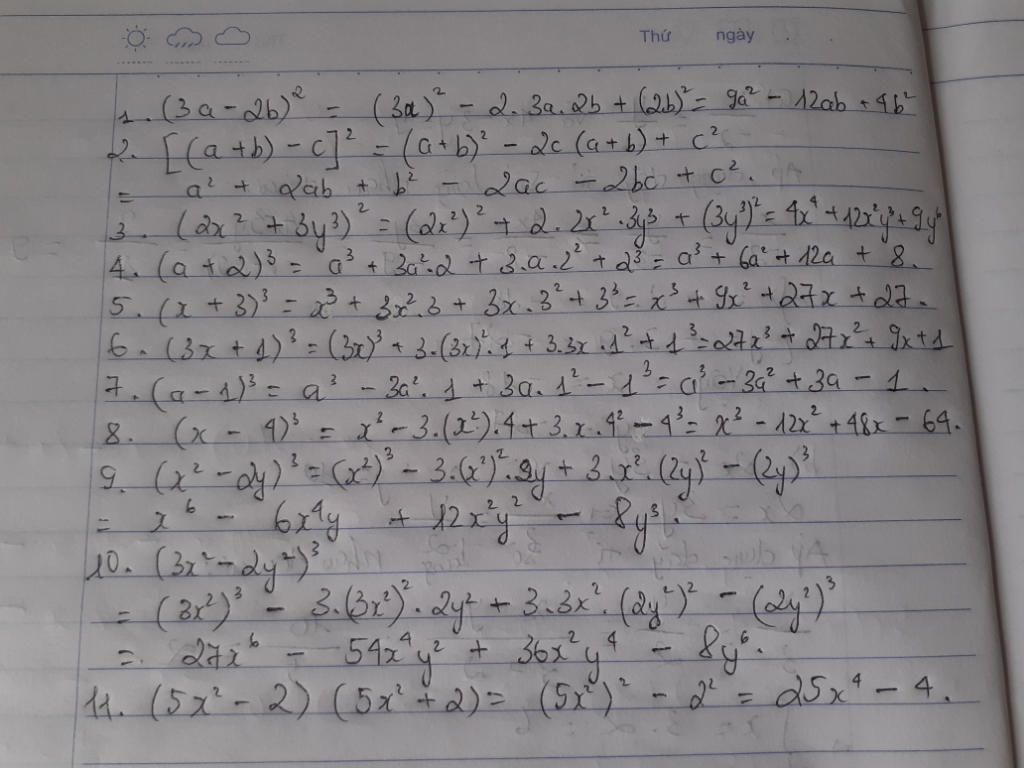 Thứ ngày
1. (3a - 2b)² = (3a)² - 2.3a.2b + (2b)² = 9a² - 12ab + 4b²
2. [(a+b) - c]² = (a+b)² - 2c(a+b) + c²
= a² + 2ab + b² - 2ac - 2bc + c².
3. (2x² + 3y³)² = (2x²)² + 2.2x².3y³ + (3y³)² = 4x⁴ + 12x²y³ + 9y⁶
4. (a + 2)³ = a³ + 3a².2 + 3.a.2² + 2³ = a³ + 6a² + 12a + 8.
5. (x + 3)³ = x³ + 3x².3 + 3x.3² + 3³ = x³ + 9x² + 27x + 27.
6. (3x + 1)³ = (3x)³ + 3.(3x)².1 + 3.3x.1² + 1³ = 27x³ + 27x² + 9x + 1
7. (a - 1)³ = a³ - 3a².1 + 3a.1² - 1³ = a³ - 3a² + 3a - 1.
8. (x - 4)³ = x³ - 3.(x²).4 + 3.x.4² - 4³ = x³ - 12x² + 48x - 64.
9. (x² - 2y)³ = (x²)³ - 3.(x²)².2y + 3.x².(2y)² - (2y)³
= x⁶ - 6x⁴y + 12x²y² - 8y³.
10. (3x² - 2y²)³
= (3x²)³ - 3.(3x²)².2y² + 3.3x².(2y²)² - (2y²)³
= 27x⁶ - 54x⁴y² + 36x²y⁴ - 8y⁶.
11. (5x² - 2)(5x² + 2) = (5x²)² - 2² = 25x⁴ - 4.